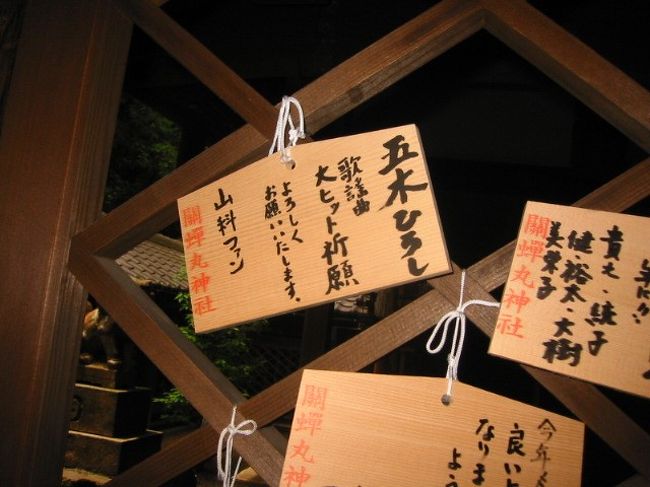 五木ひろし
歌謡曲
大ヒット祈願
よろしく
お願いいたします。
山科ファン
關蟬丸神社
貴大・紘子
健・裕太・大樹
美栄子
關蟬丸神社
今年も
良いと
なりま
よう
關蟬丸神社